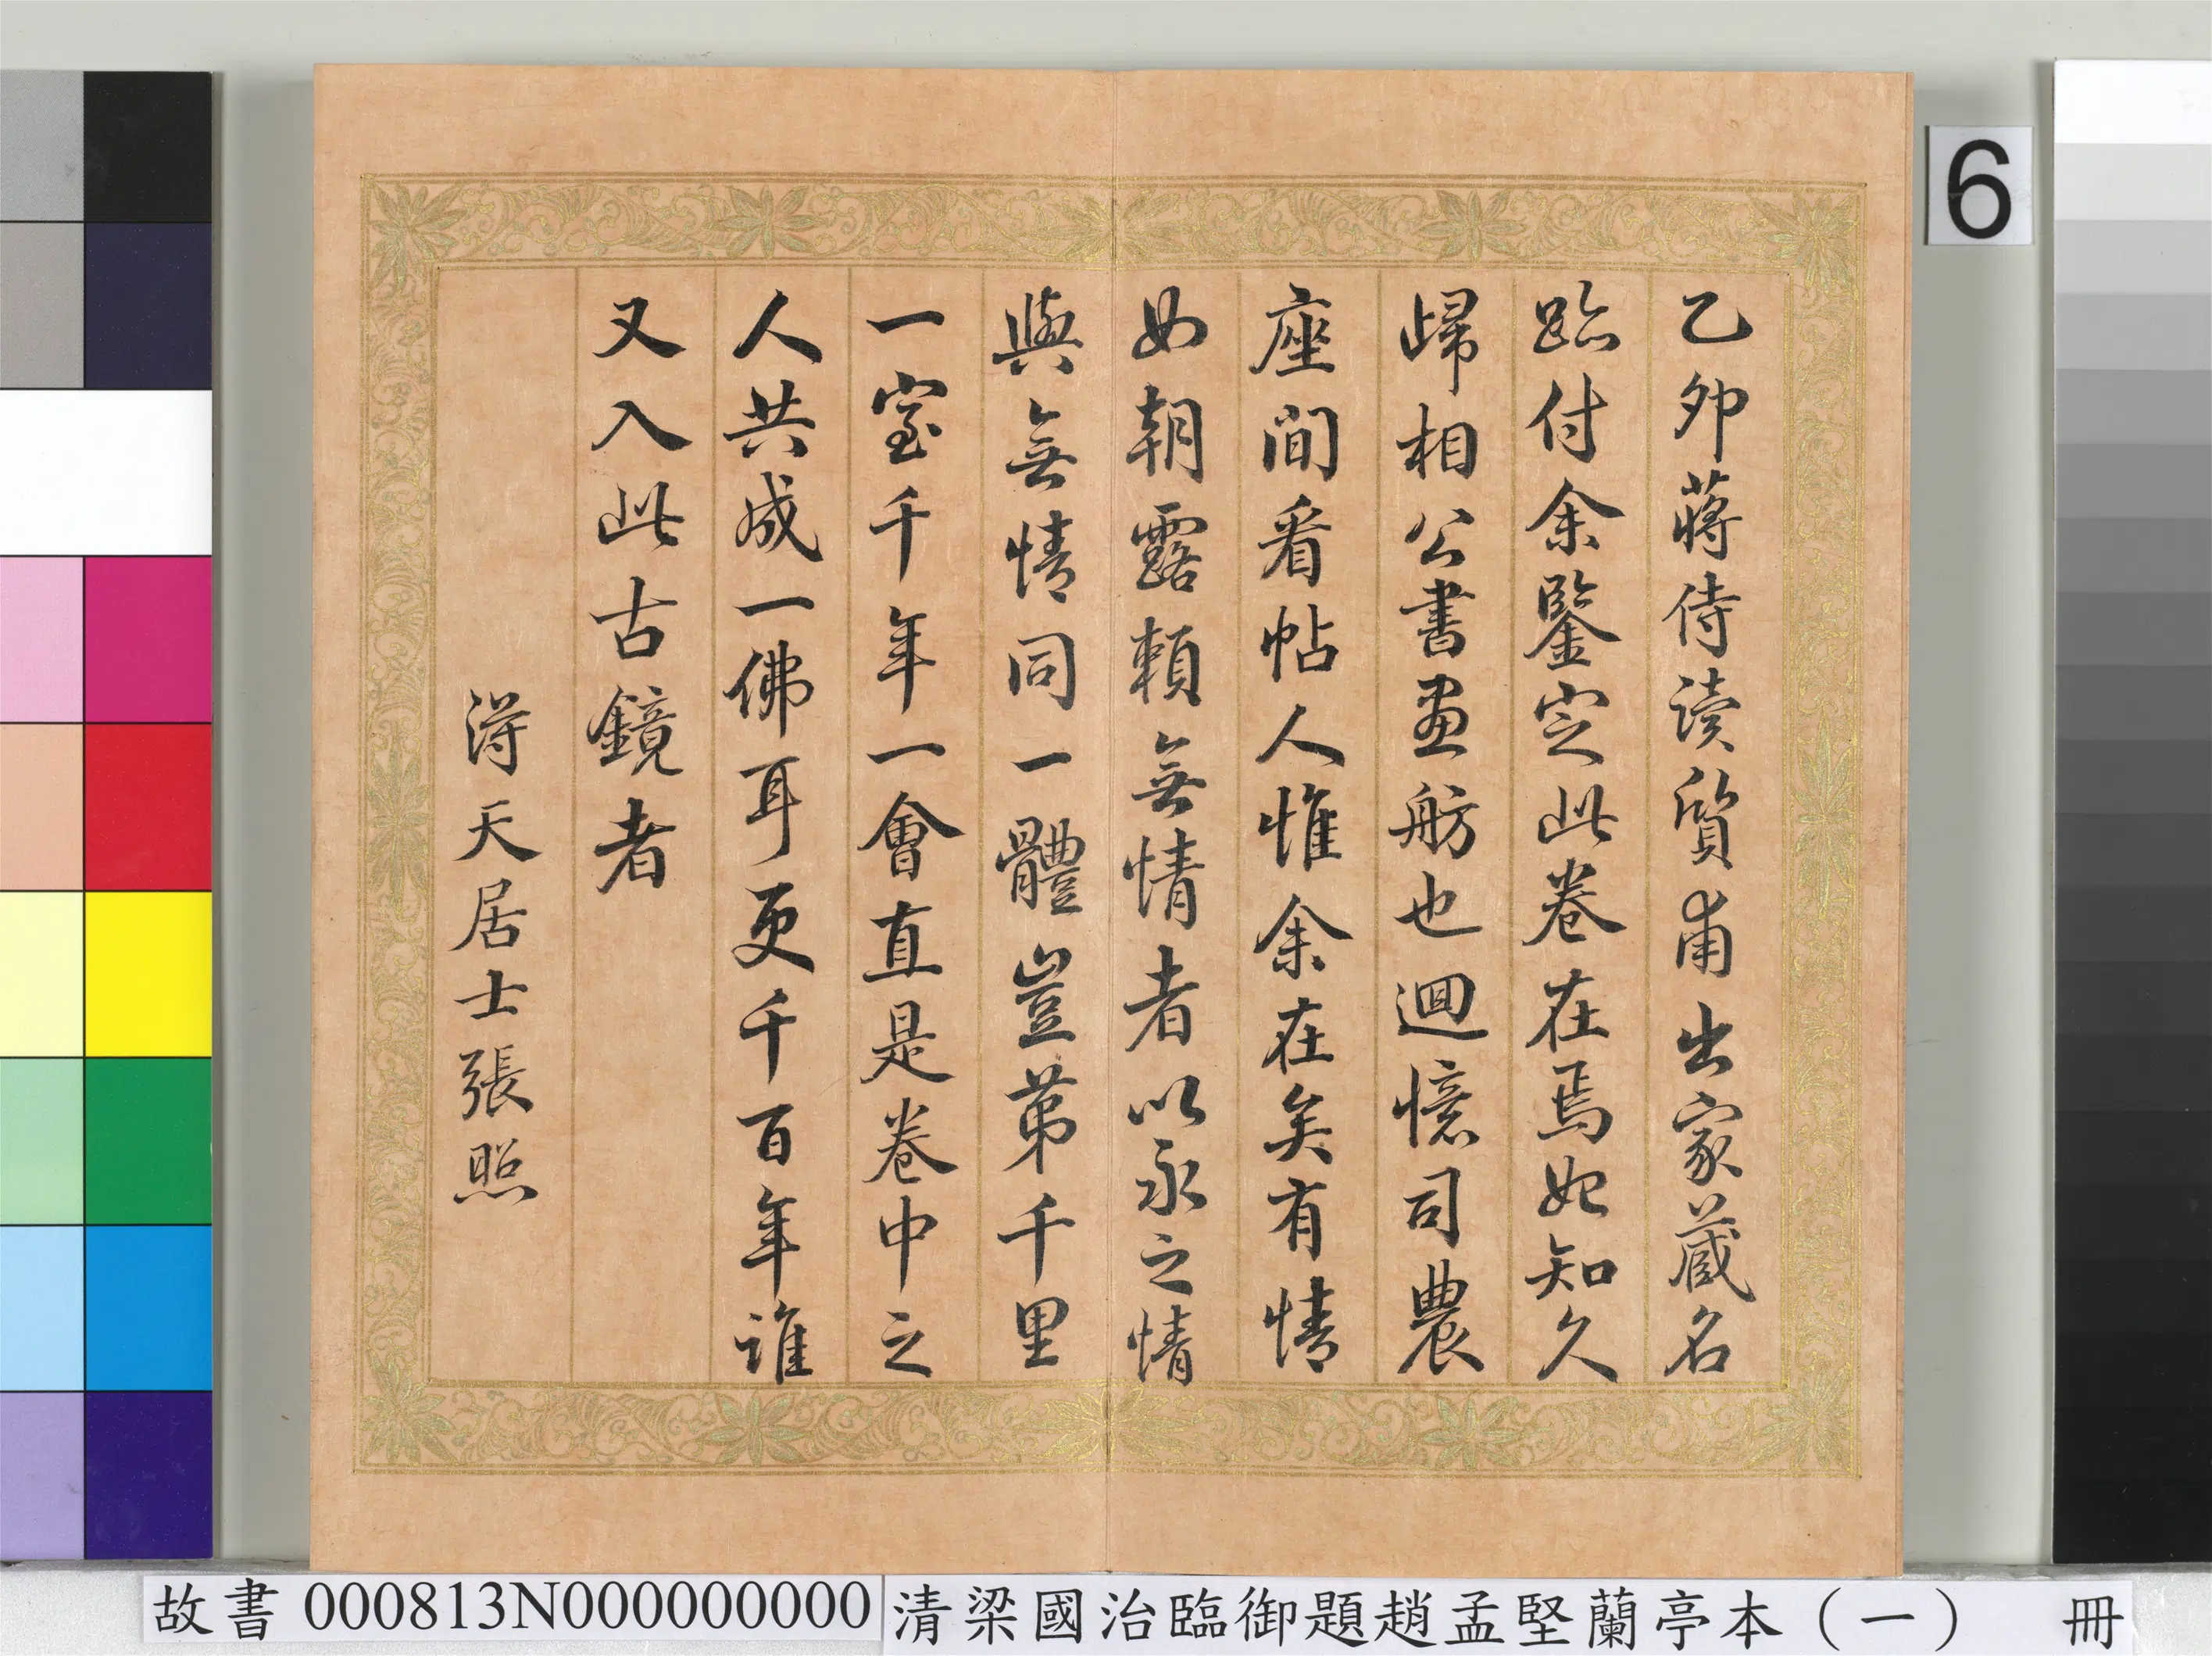 乙卯蔣侍读質甫出家蔵名
跡付余鑒定此卷在焉始知久
歸相公書畫舫也迴憶司農
座間看帖人惟余在矣有情
如朝露賴無情者以永之情
與無情同一體豈苐千里
一室千年一會直是卷中之
人共成一佛耳更千百年誰
又入此古鏡者
淂天居士張照
6
故書 000813N000000000 清梁國治臨御題趙孟堅蘭亭本（一） 冊